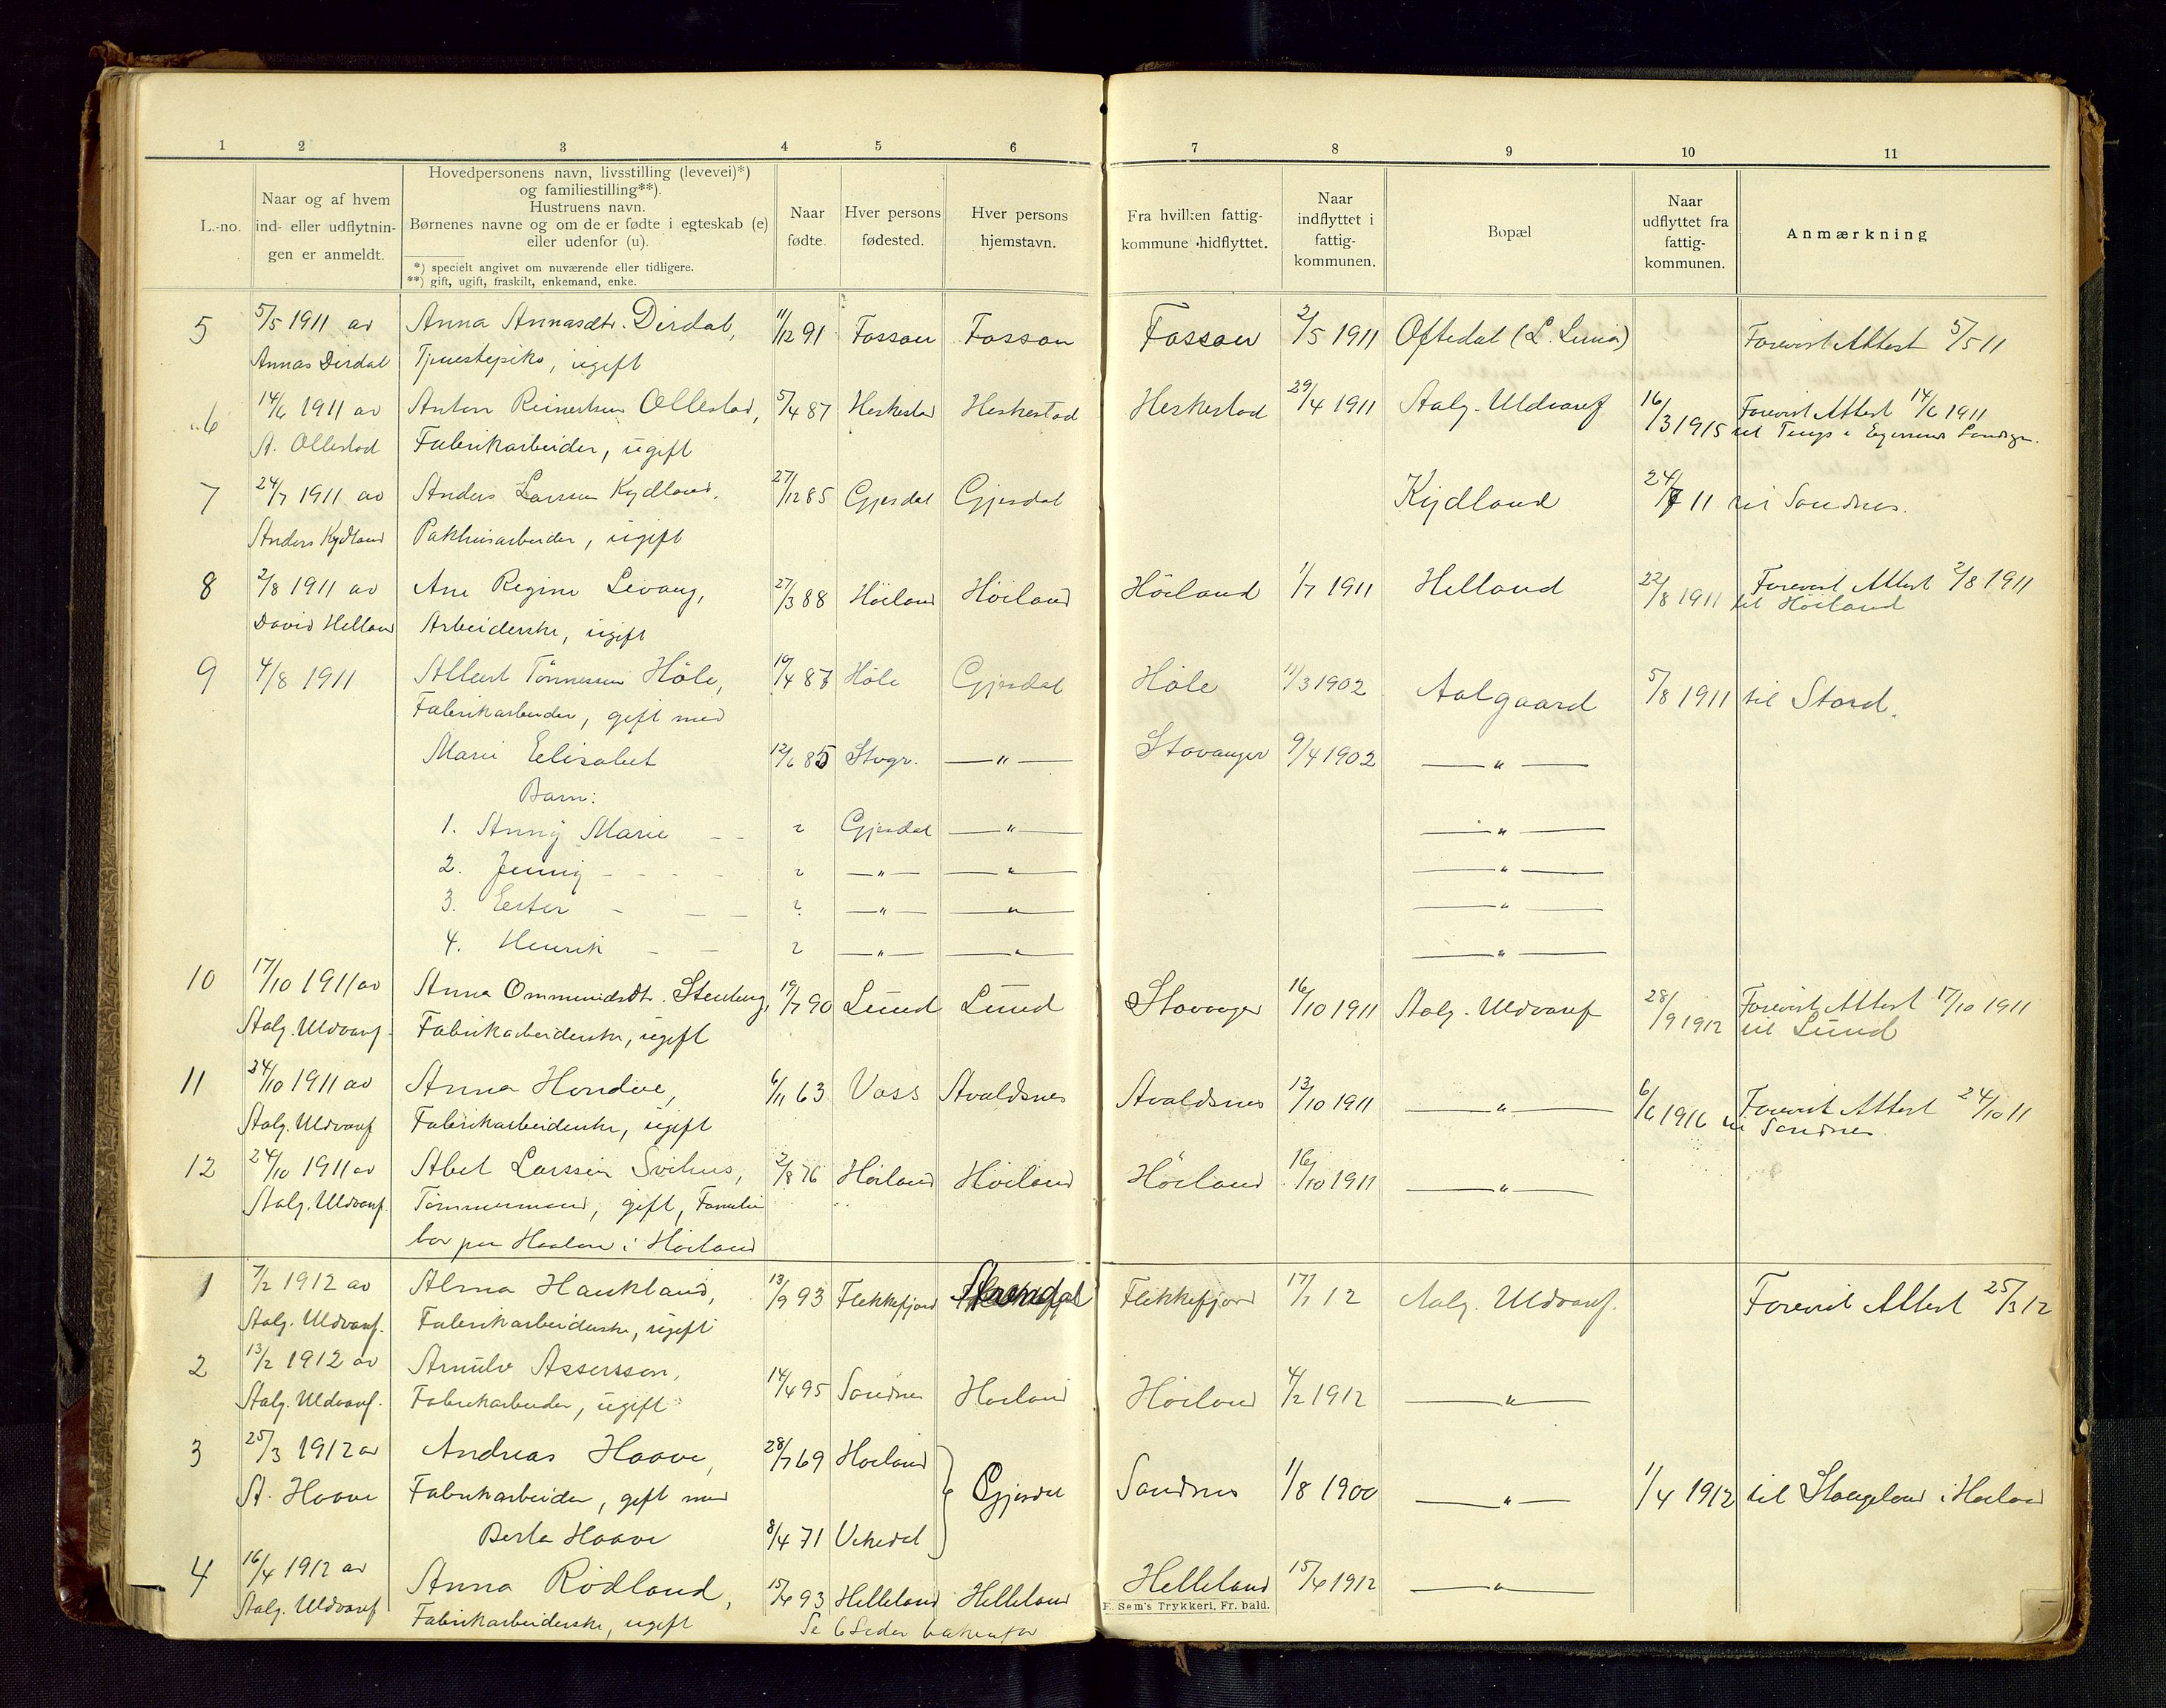 1 2 3 4 5 6 7 8 9 10 11
L.-no.
Naar og af hvem
ind- eller udflytnin-
gen er anmeldt.
Hovedpersonens navn, livsstilling (levevei)*)
og familiestilling**).
Hustruens navn.
Børnenes navne og om de er fødte i egteskab (e)
eller udenfor (u).
*) specielt angivet om nuværende eller tidligere.
**) gift, ugift, fraskilt, enkemand, enke.
Naar
fødte.
Hver persons
fødested.
Hver persons
hjemstavn.
Fra hvilken fattig-
kommune hidflyttet.
Naar
indflyttet i
fattig-
kommunen.
Bopæl
Naar
udflyttet fra
fattig-
kommunen.
Anmærkning
5 5/5 1911 av Anna Annasdtr. Dirdal, 11/12 91 Fossan Fossan Fossan 2/5 1911 Oftedal (L. Lima) Forevist Attest 5/5 11
Annas Dirdal Tjenestepike, ugift
6 14/6 1911 av Anton Reinertsen Ollestad, 5/4 87 Heskestad Heskestad Heskestad 29/4 1911 Aalg. Uldvaref 16/3 1915 Forevist Attest 14/6 1911
A. Ollestad Fabrikarbeider, ugift til Tengs i Egersund Landsgn.
7 24/7 1911 av Anders Larsen Kydland, 27/12 85 Gjesdal Gjesdal Kydland 24/7 11 til Sandnes.
Anders Kydland Pakhusarbeider, ugift
8 2/8 1911 av Ane Regine Levang, 27/3 88 Höiland Höiland Höiland 1/7 1911 Helland 22/8 1911 Forevist Attest 2/8 1911
David Helland Arbeiderske, ugift til Höiland
9 4/8 1911 Albert Tönnessen Höle, 19/4 87 Höle Gjesdal Höle 11/3 1902 Aalgaard 5/8 1911 til Stord.
Fabrikarbeider, gift med
Marie Eelisabet 12/6 85 Stvgr. — " — Stavanger 9/4 1902 — " —
Barn:
1. Anny Marie - - ? Gjesdal — " — — " —
2. Jenny - - - - ? — " — — " — — " —
3. Eester - - - ? — " — — " — — " —
4. Henrik - - ? — " — — " — — " —
10 17/10 1911 av Anna Ommundsdt. Stenberg, 19/7 90 Lund Lund Stavanger 16/10 1911 Aalg. Uldvaref 28/9 1912 Forevist Attest 17/10 1911
Aalg. Uldvaref. Fabrikarbeiderske, ugift til Lund
11 24/10 1911 av Anna Hondve, 6/11 63 Voss Avaldsnes Avaldsnes 13/10 1911 — " — 6/6 1916 Forevist Attest 24/10 11
Aalg. Uldvaref Fabrikarbeiderske, ugift til Sandnes
12 24/10 1911 av Abel Larssen Svihus, 2/8 76 Höiland Höiland Höiland 16/10 1911 — " —
Aalg. Uldvaref. Tömmermand, gift, Familie
bor paa Haaland i Höiland
1 7/2 1912 av Alma Haukland, 13/9 93 Flekkefjord Flekkefjord 17/1 12 Aalg. Uldvaref. Forevist Attest 25/3 12
Aalg. Uldvaref. Fabrikarbeiderske, ugift
2 13/2 1912 av Arnulv Assersson, 14/4 95 Sandnes Höiland Höiland 4/2 1912 — " —
Aalg. Uldvaref. Fabrikarbeider, ugift
3 25/3 1912 av Andreas Haave, 28/7 69 Höiland Gjesdal Sandnes 1/8 1900 — " — 1/4 1912 til Stangeland i Höiland
A. Haave Fabrikarbeider, gift med
Berta Haave 8/4 71 Vikedal
4 16/4 1912 av Anna Rödland, 15/4 93 Helleland Helleland Helleland 15/4 1912 — " —
Aalg. Uldvaref Fabrikarbeiderske, ugift
Se 6 Seder bakenfor
E. Sem's Trykkeri, Fr.hald.